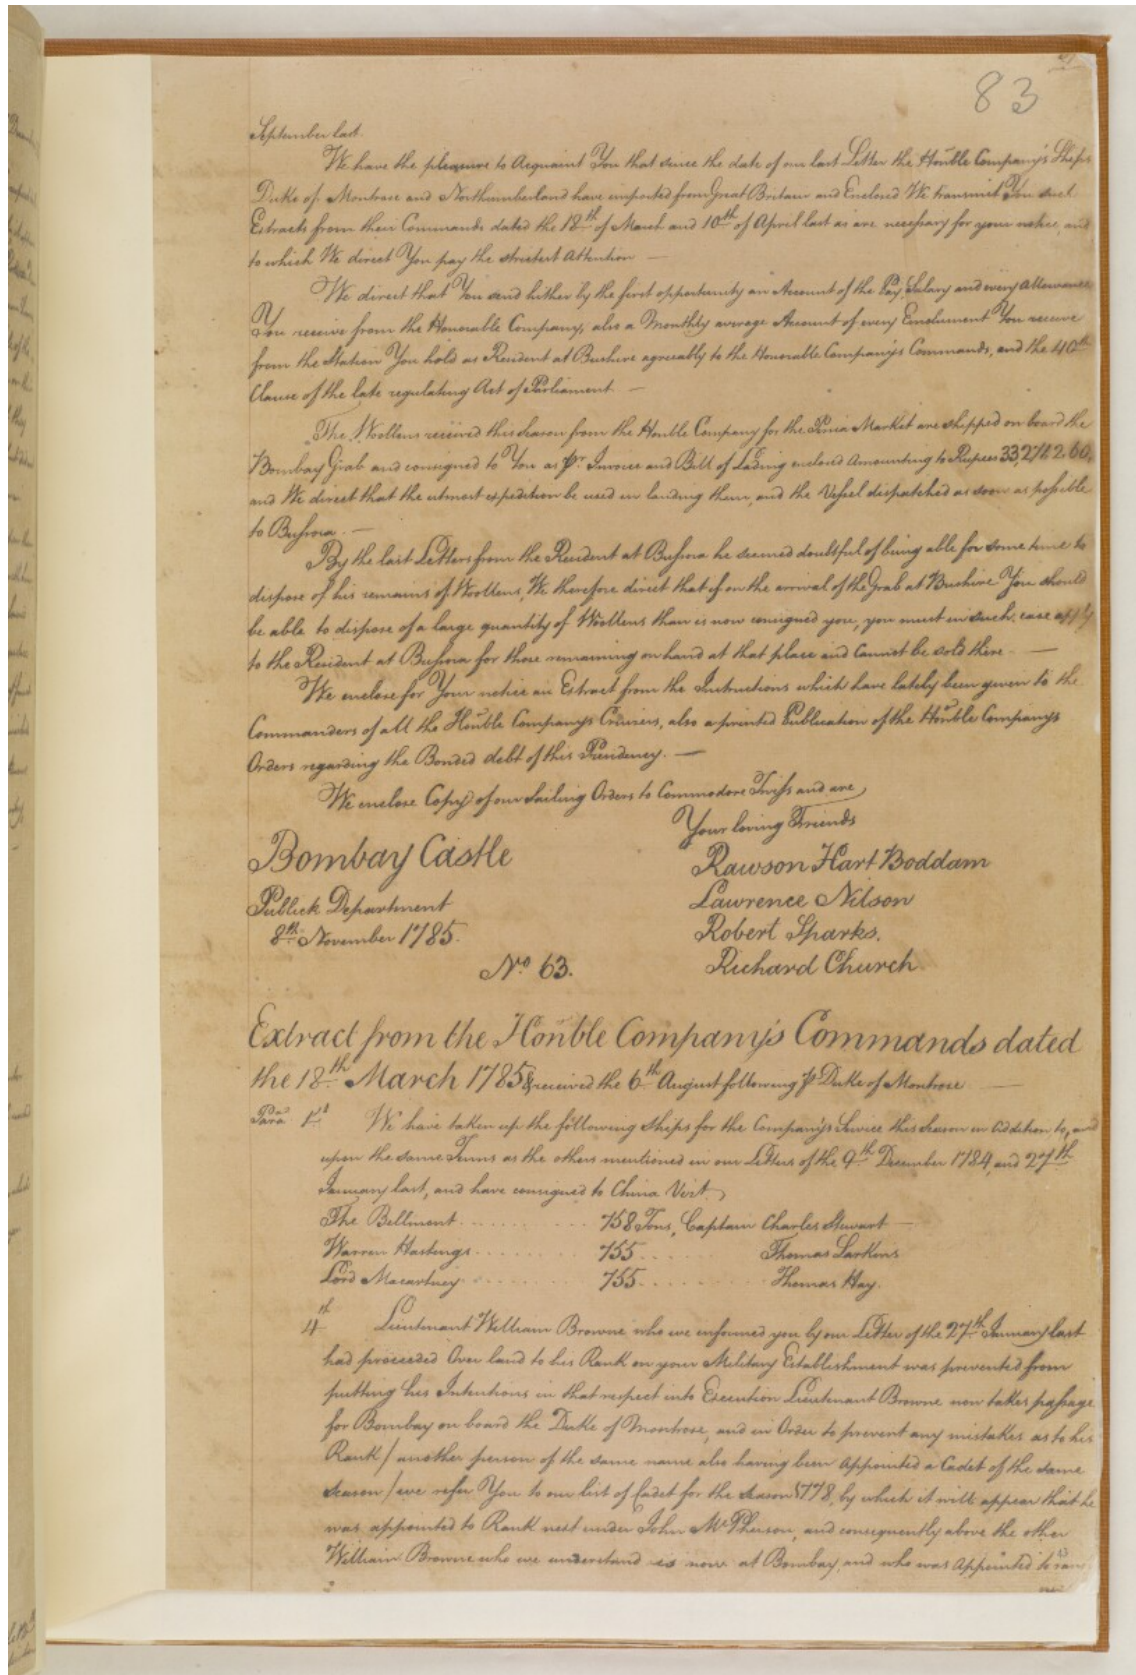 83
September last.
We have the pleasure to Acquaint You that since the date of our last Letter the Honble Company's Ships
Duke of Montrose and Northumberland have imported from Great Britain and Enclosed We transmit You such
Extracts from their Commands dated the 18th of March and 10th of April last as are necessary for your notice, and
to which We direct You pay the strictest Attention —
We direct that You send hither by the first opportunity an Account of the Pay, Salary and every Allowance
You receive from the Honorable Company, also a Monthly average Account of every Emolument You receive
from the Station You hold as Resident at Bushire agreeably to the Honorable Company's Commands, and the 40th
Clause of the late regulating Act of Parliament —
The Woollens received this Season from the Honble Company for the Persia Market are shipped on board the
Bombay Grab and consigned to You as pr. Invoice and Bill of Lading enclosed Amounting to Rupees 33,274.2.60,
and We direct that the utmost expedition be used in landing them, and the Vessel dispatched as soon as possible
to Bussora. —
By the last Letters from the Resident at Bussora he seemed doubtful of being able for some time to
dispose of his remains of Woollens, We therefore direct that if on the arrival of the Grab at Bushire You should
be able to dispose of a large quantity of Woollens than is now consigned you, you must in such case apply
to the Resident at Bussora for those remaining on hand at that place and Cannot be sold there —
We enclose for Your notice an Extract from the Instructions which have lately been given to the
Commanders of all the Honble Company's Cruizers, also a printed Publication of the Honble Company's
Orders regarding the Bonded debt of this Presidency. —
We enclose Copy of our Sailing Orders to Commodore and are
Your loving Friends
Bombay Castle
Rawson Hart Boddam
Publick Department
Lawrence Nilson
8th November 1785.
Robert Sparks.
No 63.
Richard Church
Extract from the Honble Company's Commands dated
the 18th March 1785 & received the 6th August following pr Duke of Montrose —
Para 1st We have taken up the following Ships for the Company's Service this Season in Addition to, and
upon the same Terms as the others mentioned in our Letters of the 9th December 1784, and 27th
January last, and have consigned to China Vizt.
The Bellmont 758 Tons, Captain Charles Stewart —
Warren Hastings 755 Thomas Larkins
Lord Macartney 755 Thomas Hay.
4th Lieutenant William Browne who we informed you by our Letter of the 27th January last
had proceeded Over land to his Rank on your Military Establishment was prevented from
putting his Intentions in that respect into Execution Lieutenant Browne now takes passage
for Bombay on board the Duke of Montrose, and in Order to prevent any mistakes as to his
Rank / another person of the same name also having been Appointed a Cadet of the same
season / we refer You to our list of Cadet for the Season 1778, by which it will appear that he
was appointed to Rank next under John McPherson, and consequently above the other
William Browne who we understand is now at Bombay, and who was Appointed to